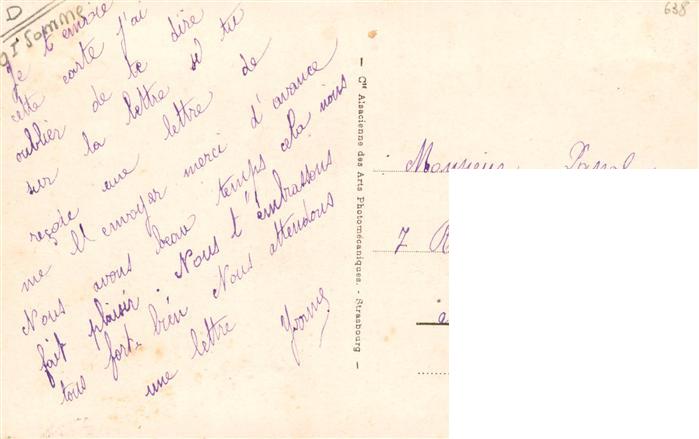 D
9I Somme
Je t'envoie
cette carte j'ai
oublier de te dire
sur la lettre si tu
reçois une lettre de
me ll envoyer merci d'avance
Nous avons beau temps cela nous
fait plaisir. Nous t'embrassons
tous fort. bien Nous attendons
une lettre Yvonne
Cie Alsacienne des Arts Photomécaniques. - Strasbourg
638
Monsieur
7